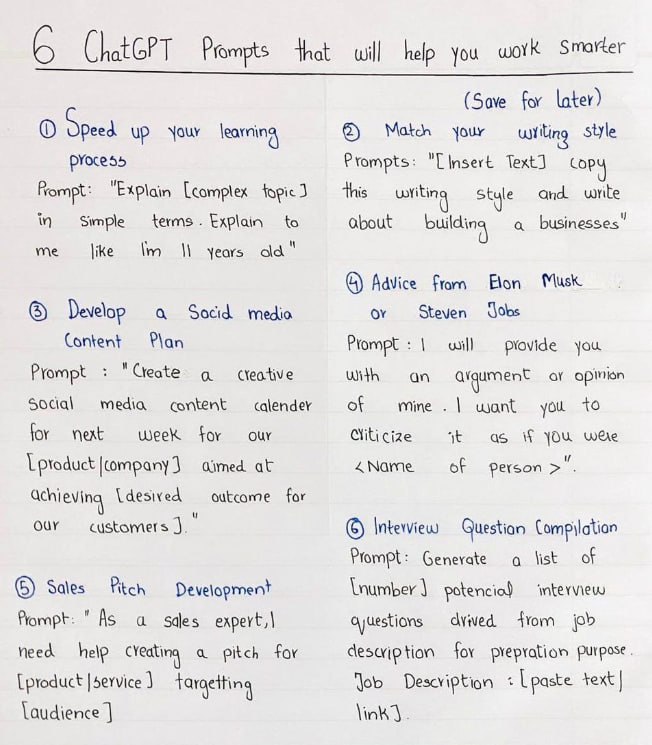 6 ChatGPT Prompts that will help you work smarter
(Save for later)
① Speed up your learning
process
Prompt: "Explain [complex topic]
in simple terms. Explain to
me like I'm 11 years old"
② Match your writing style
Prompts: "[Insert Text] copy
this writing style and write
about building a businesses"
③ Develop a Socid media
Content Plan
Prompt : "Create a creative
social media content calender
for next week for our
[product/company] aimed at
achieving [desired outcome for
our customers]."
④ Advice from Elon Musk
or Steven Jobs
Prompt : I will provide you
with an argument or opinion
of mine . I want you to
criticize it as if you were
<Name of person >".
⑤ Sales Pitch Development
Prompt: "As a sales expert, I
need help creating a pitch for
[product/service] targetting
[audience]
⑥ Interview Question Compilation
Prompt: Generate a list of
[number] potencial interview
questions drived from job
description for prepration purpose.
Job Description : [paste text/
link].